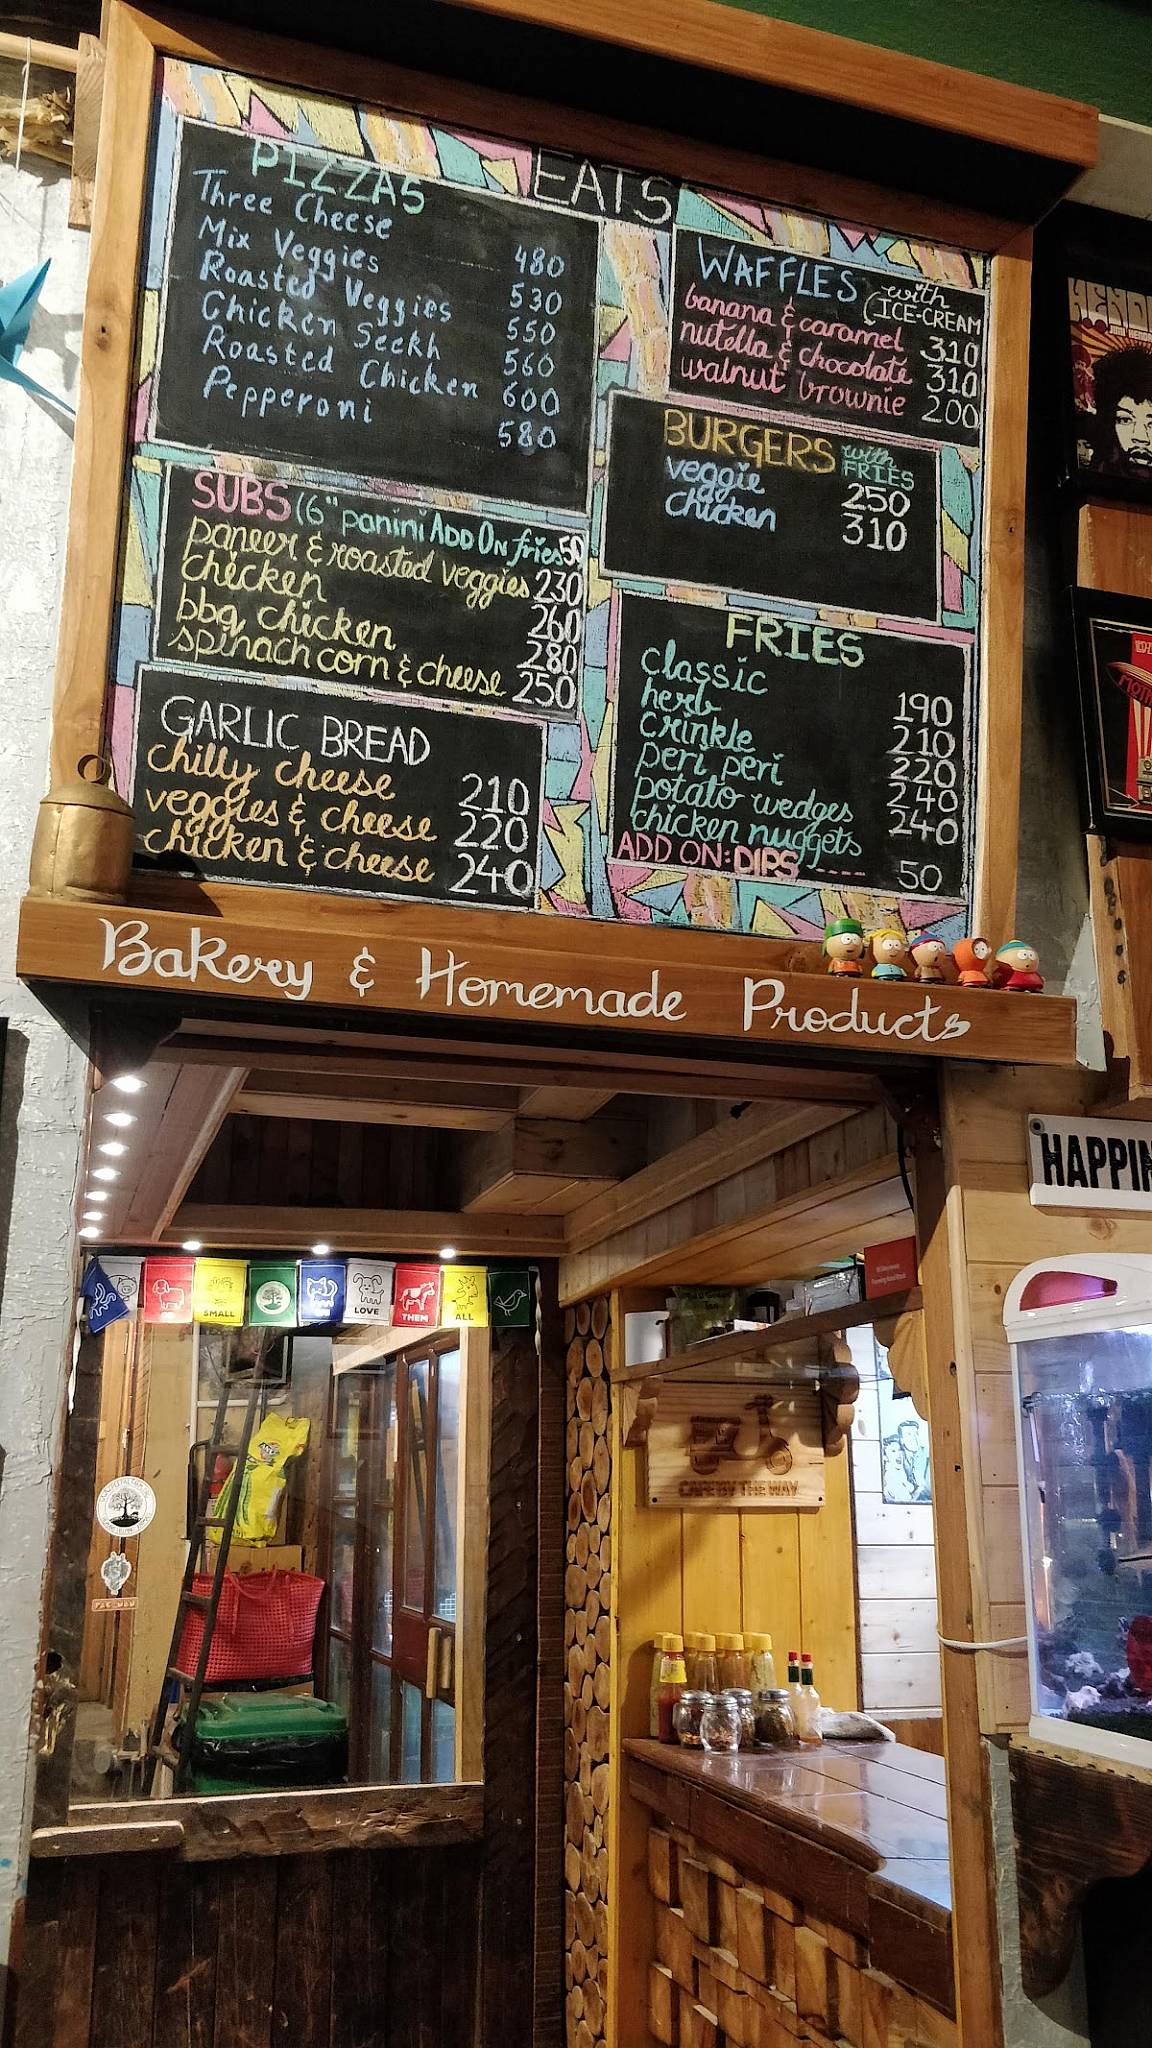 EATS
PIZZAS
Three Cheese 480
Mix Veggies 530
Roasted Veggies 550
Chicken Seekh 560
Roasted Chicken 600
Pepperoni 580
SUBS (6" panini ADD ON fries 50
paneer & roasted veggies 230
chicken 260
bbq chicken 280
spinach corn & cheese 250
GARLIC BREAD
chilly cheese 210
veggies & cheese 220
chicken & cheese 240
WAFFLES with
(ICE-CREAM
banana & caramel 310
nutella & chocolate 310
walnut brownie 200
BURGERS with
FRIES
veggie 250
chicken 310
FRIES
classic 190
herb 210
crinkle 220
peri peri 240
potato wedges 240
chicken nuggets
ADD ON: DIPS ----- 50
Bakery & Homemade Products
HAPPIN
SMALL
LOVE
THEM
ALL
CAFE BY THE WAY